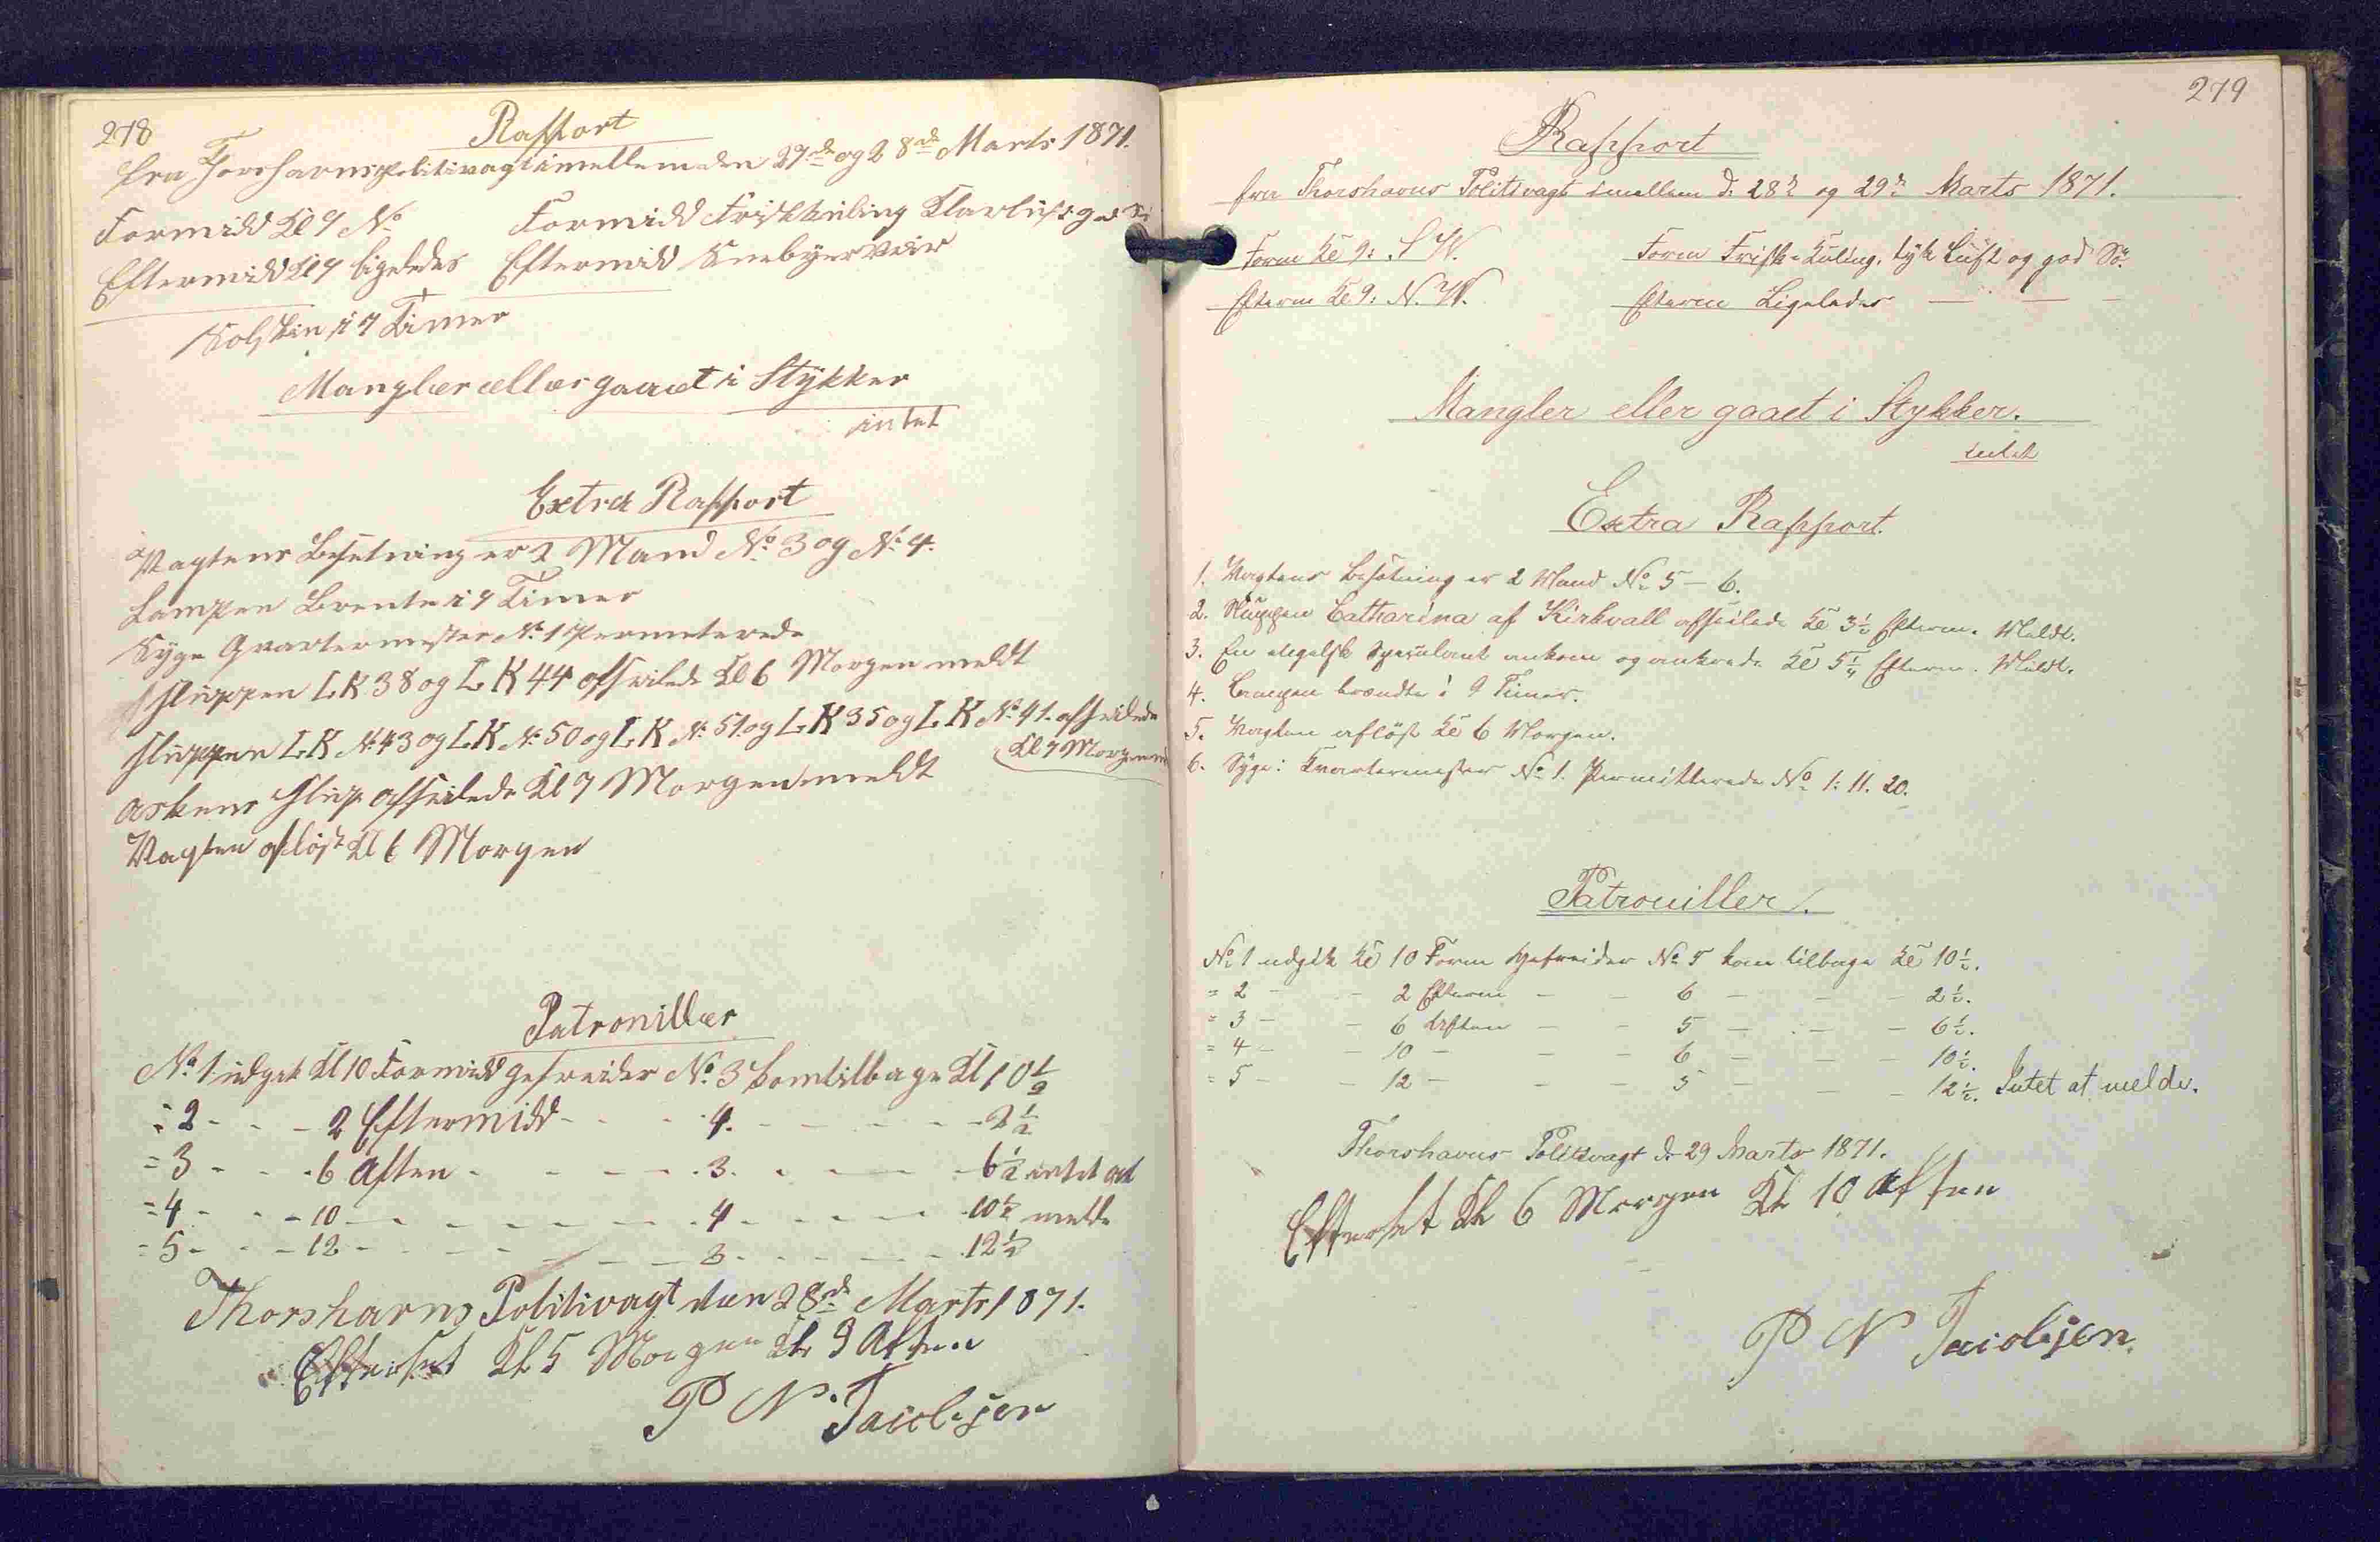 278
Rapport
fra Thorshavns politivagt imellem den 27de og 28de Marts 1871.
Formidd Kl 9 No Formidd Frisk kuling Klarluft god Sö
Eftermidd Kl 9 ligeledes Eftermidd Sneebyer Veir
Solskin i 7 Timer
Mangler eller gaaet i Stykker
intet
Extra Rapport
Vagtens Besetning er 2 Mand No 3 og No 4.
Lampen Brente i 9 Timer
Syge Qvartermester No 1 Permiterede
Sluppen LK 38 og LK 44 afseilede Kl 6 Morgen meldt
Sluppen LK No 43 og LK No 50 og LK No 51 og LK 35 og LK No 41. afseilede
Kl 7 Morgen
Askens Slup afseilede Kl 7 Morgen meldt
Vagten aflöst Kl 6 Morgen
Patrouiller
No 1 udgik Kl 10 Formidd gefreider No 3 kom tilbage Kl 10 1/2
= 2 - - - 2 Eftermidd - - - 4. - - - - - 2 1/2
= 3 - - - 6 Aften - - - - 3. - - - - 6 1/2 intet at
= 4 - - - 10 - - - - - - 4 - - - - 10 1/2 melde
= 5 - - - 12 - - - - - - 3 - - - - 12 1/2
Thorshavns Politivagt den 28de Marts 1871.
Efterset Kl 5 Morgen Kl 9 Aften
P N. Jacobsen
279
Rapport
fra Thorshavns Politivagt imellem d. 28de og 29de Marts 1871.
Form Kl 9: S W. Form Frisk-Kuling, tyk Luft og god Sö.
Efterm Kl 9: N. W. Efterm Ligeledes — — —
Mangler eller gaaet i Stykker.
intet
Extra Rapport.
1. Vagtens Besætning er 2 Mand No 5 - 6.
2. Sluppen Catharina af Kirkvall afseilede Kl 3 1/2 Efterm. Meldt.
3. En engelsk Speculant ankom og ankrede Kl 5 1/4 Efterm. Meldt.
4. Lampen brændte i 9 Timer.
5. Vagten aflöst Kl 6 Morgen.
6. Syge: Kvartermester No 1. Permitterede No 1: 11. 20.
Patrouiller.
No 1 udgik Kl 10 Form Gefreider No 5 kom tilbage Kl 10 1/2.
= 2 - - 2 Efterm - - 6 - - - 2 1/2.
= 3 - - 6 Aften - - 5 - - - 6 1/2.
= 4 - - 10 - - - 6 - - - 10 1/2.
= 5 - - 12 - - - 5 - - - 12 1/2. Intet at melde.
Thorshavns Politivagt d. 29 Marts 1871.
Efterset Kl 6 Morgen Kl 10 Aften
P N Jacobsen.